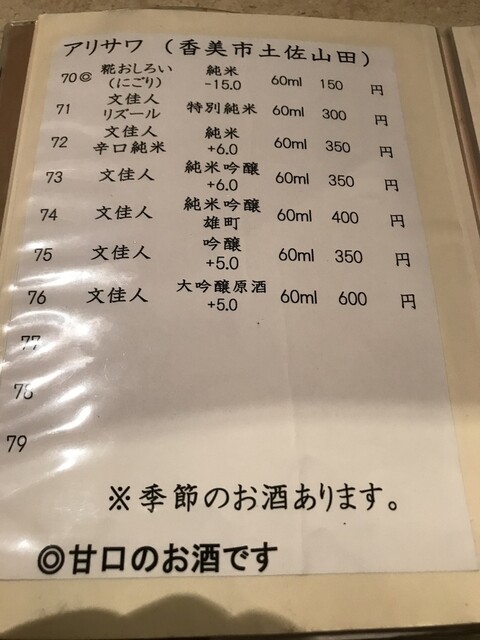 アリサワ（香美市土佐山田）
70◎ 糀おしろい（にごり） 純米 -15.0 60ml 150 円
71 文佳人 リズール 特別純米 60ml 300 円
72 文佳人 辛口純米 純米 +6.0 60ml 350 円
73 文佳人 純米吟醸 +6.0 60ml 350 円
74 文佳人 純米吟醸 雄町 60ml 400 円
75 文佳人 吟醸 +5.0 60ml 350 円
76 文佳人 大吟醸原酒 +5.0 60ml 600 円
77
78
79
※季節のお酒あります。
◎甘口のお酒です